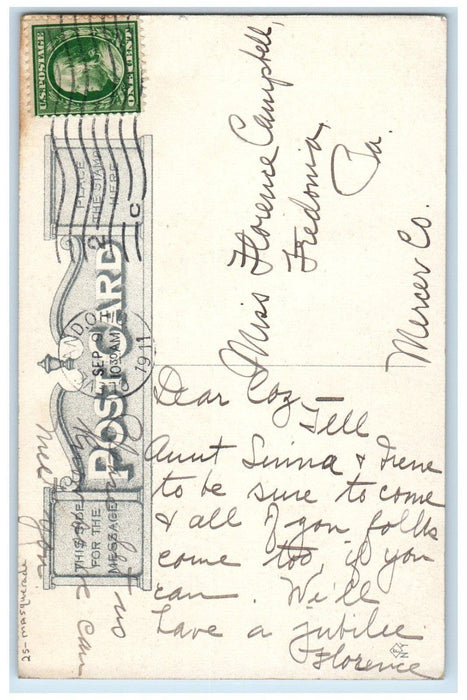 U.S. POSTAGE
ONE CENT
PLACE
THE STAMP
HERE
SEP 9
10:30 AM
1911
C
POST CARD
THIS SIDE
FOR THE
MESSAGE
Miss Florence Campbell,
Fredonia,
Pa.
Mercer Co.
Dear Coz - Tell
Aunt Linna & Irene
to be sure to come
& all of you folks
come too, if you
can. We'll
have a jubilee.
Florence
Phone
we can
meet you.
25- masquerade